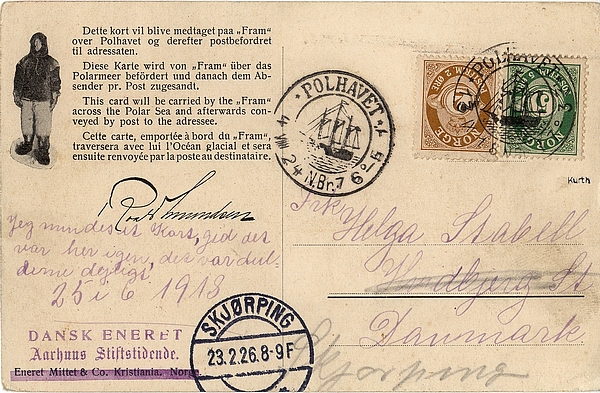 Dette kort vil blive medtaget paa „Fram“
over Polhavet og derefter postbefordret
til adressaten.
Diese Karte wird von „Fram“ über das
Polarmeer befördert und danach dem Ab-
sender pr. Post zugesandt.
This card will be carried by the „Fram“
across the Polar Sea and afterwards con-
veyed by post to the adressee.
Cette carte, emportée à bord du „Fram“,
traversera avec lui l'Océan glacial et sera
ensuite renvoyée par la poste au destinataire.
POLHAVET
24 N.Br.
POLHAVET
NORGE
NORGE
Kurth
Roald Amundsen
Jeg mindes et Kort, gid det
var her igen, det var
dejligt
25 i 6 1913
Frk Helga Stabell
St
Danmark
Skjørping
DANSK ENERET
Aarhuus Stiftstidende.
Eneret Mittet & Co. Kristiania, Norge
SKJØRPING
23.2.26.8-9F